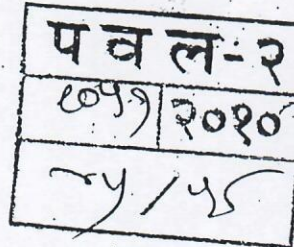 प व ल - २
९०५१ २०१०
२५ / ५८